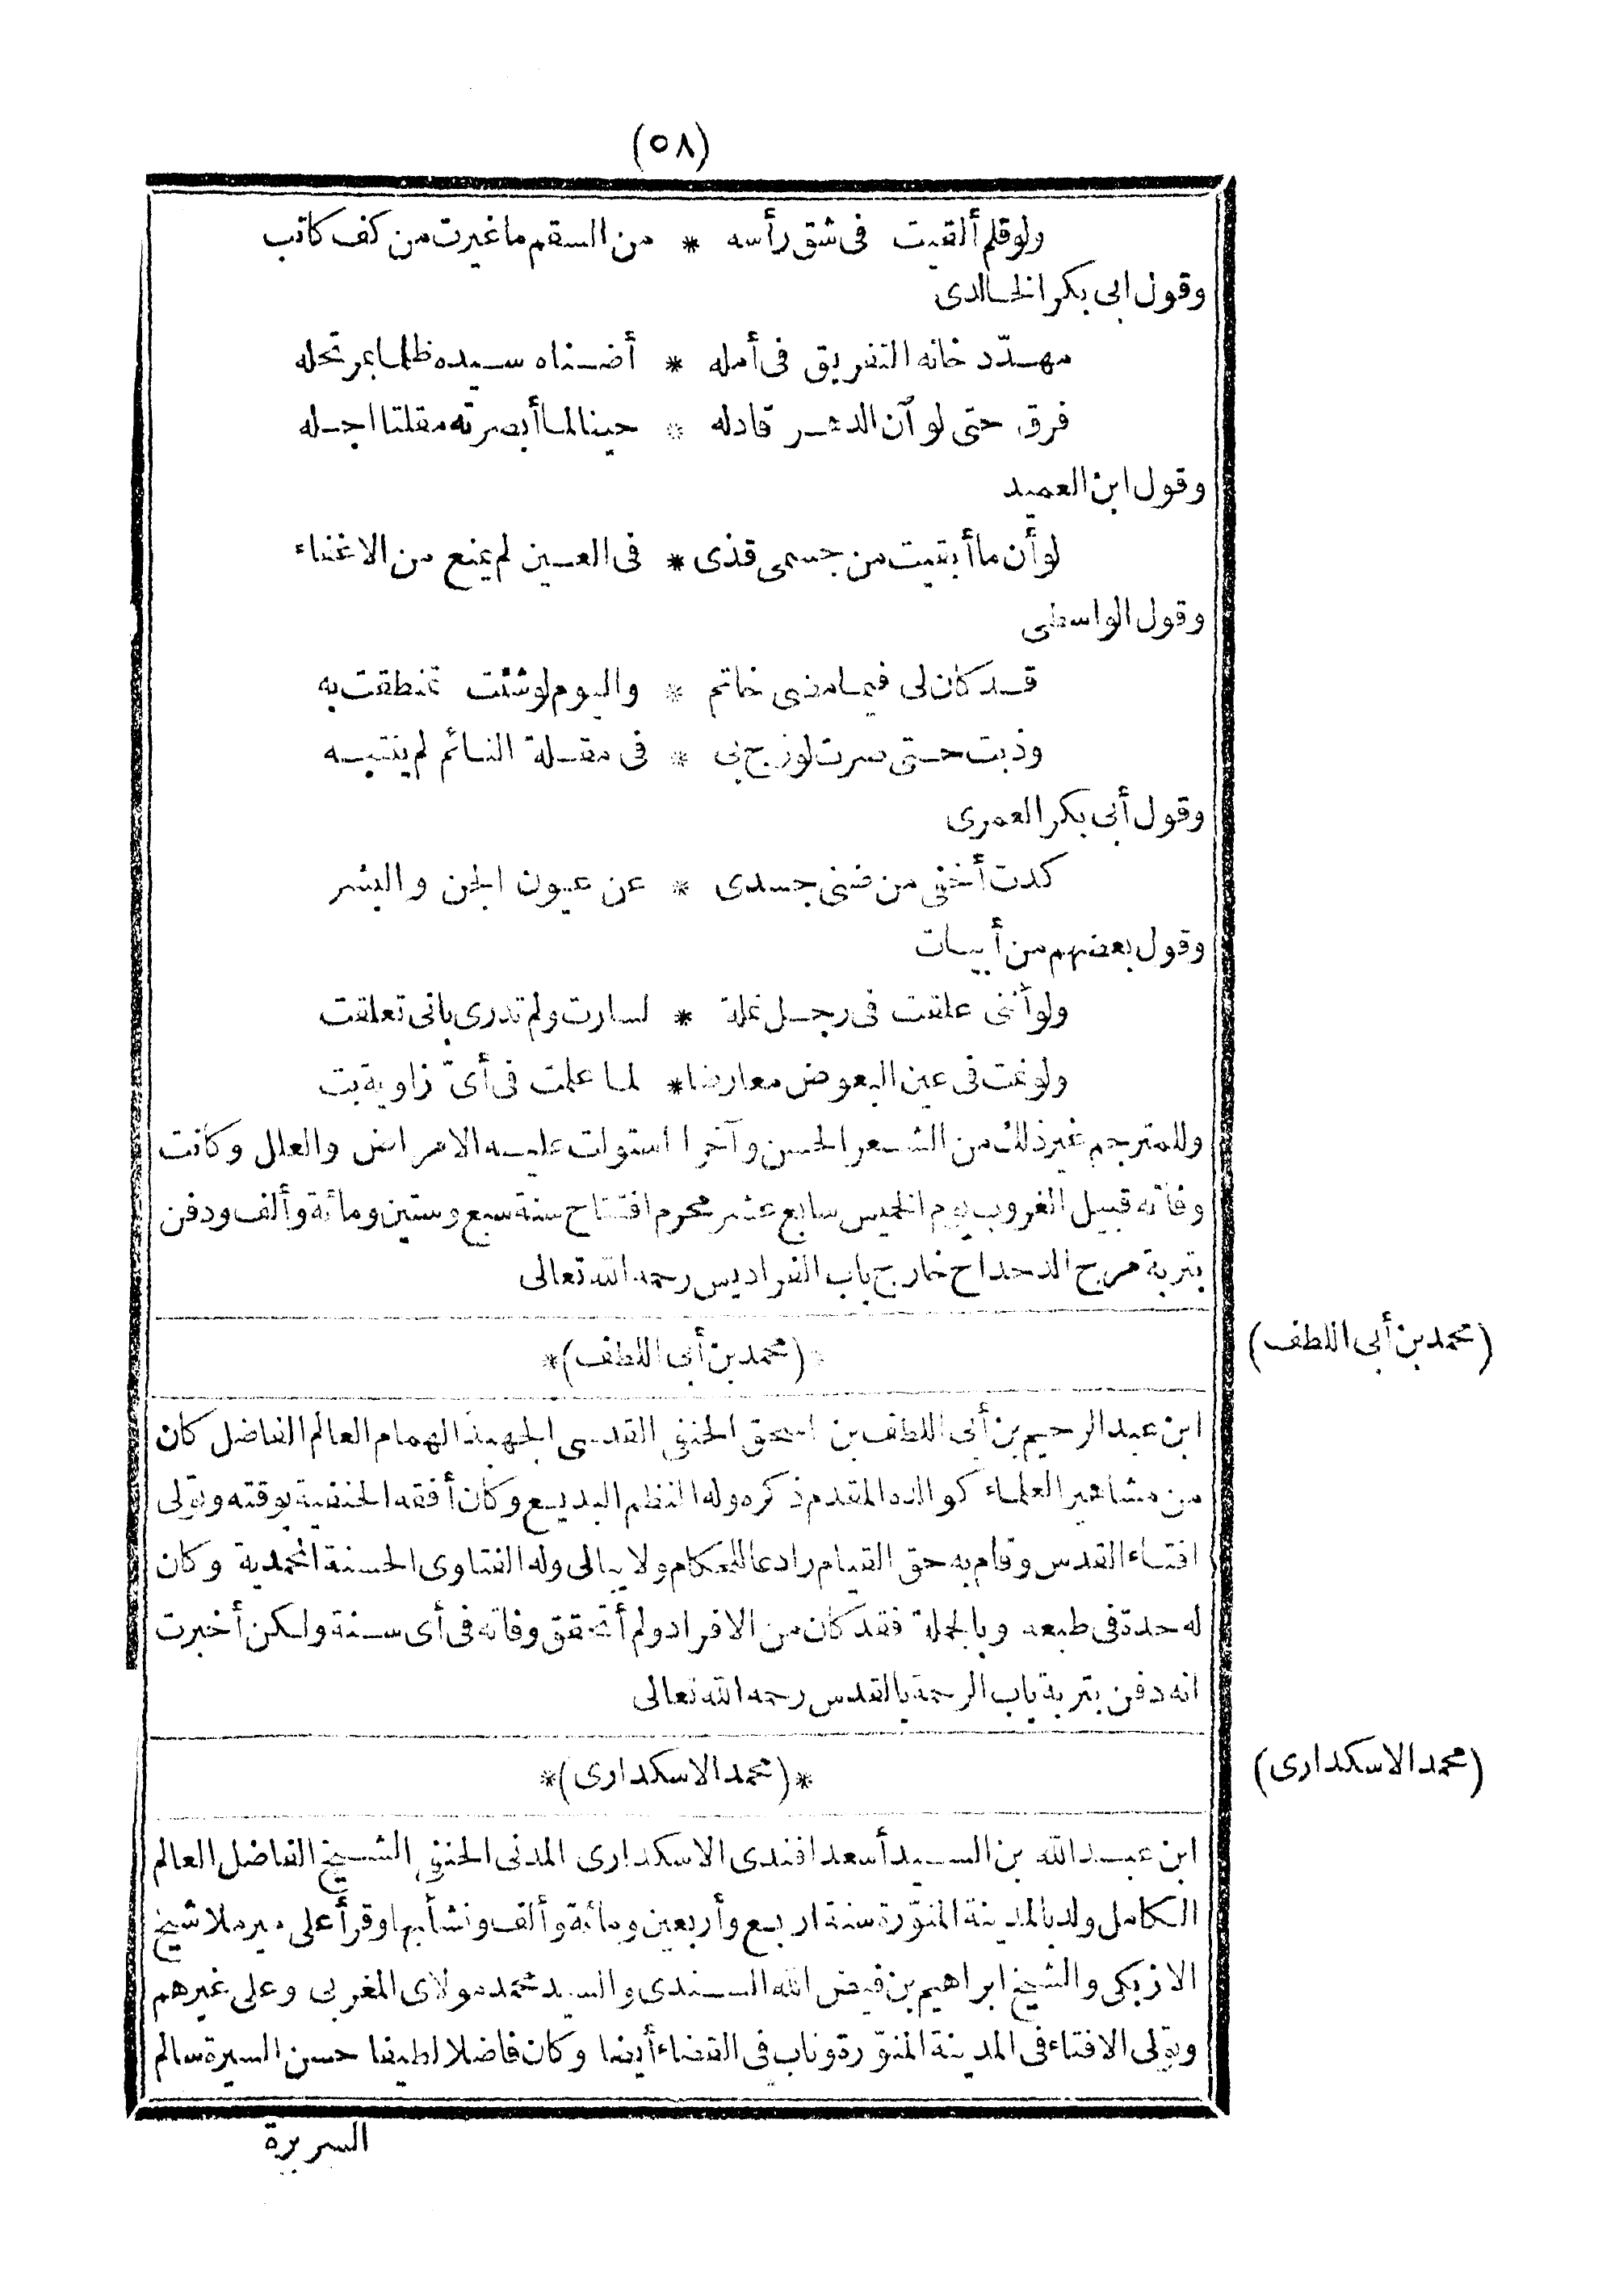 (٥٨)
ولو قلم ألقيت فى شق رأسه * من السقم ما غيرت من كف كاتب
وقول ابى بكر الخالدى
مهدّد خانه التفريق فى أمله * أضناه سيده ظلما بمرتحله
فرق حتى لو آن الدهر قادله * حينا لما أبصرته مقلتا اجله
وقول ابن العميد
لو أن ما أبقيت من جسمى قذى * فى العين لم يمنع من الاغفاء
وقول الواسطى
قد كان لى فيما مضى خاتم * واليوم لو شئت تمنطقت به
وذبت حتى صرت لو زج بى * فى مقلة النائم لم ينتبه
وقول أبى بكر العمرى
كدت أخفى من ضنى جسدى * عن عيون الجن والبشر
وقول بعضهم من أبيات
ولو أننى علقت فى رجل نملة * لسارت ولم تدرى بانى تعلقت
ولو نمت فى عين البعوض معارضا * لما علمت فى أىّ زاوية بت
وللمترجم غير ذلك من الشعر الحسن وآخرا استولت عليه الامراض والعلل وكانت
وفاته قبيل الغروب يوم الخميس سابع عشر محرم افتتاح سنة سبع وستين ومائة وألف ودفن
بتربة مرج الدحداح خارج باب الفراديس رحمه الله تعالى
(محمد بن أبى اللطف)
*(محمد بن أبى اللطف)*
ابن عبد الرحيم بن أبى اللطف بن اسحق الحنفى القدسى الجهبذ الهمام العالم الفاضل كان
من مشاهير العلماء كوالده المقدم ذكره وله النظم البديع وكان أفقه الحنفية بوقته وتولى
افتاء القدس وقام به حق القيام رادعا للحكام ولا يبالى وله الفتاوى الحسنة المحمدية وكان
له حدة فى طبعه وبالجملة فقد كان من الافراد ولم أتحقق وفاته فى أى سنة ولكن أخبرت
انه دفن بتربة باب الرحمة بالقدس رحمه الله تعالى
(محمد الاسكدارى)
*(محمد الاسكدارى)*
ابن عبد الله بن السيد أسعد افندى الاسكدارى المدنى الحنفى الشيخ الفاضل العالم
الكامل ولد بالمدينة المنوّرة سنة اربع وأربعين ومائة وألف ونشأ بها وقرأ على ميرملا شيخ
الازبكى والشيخ ابراهيم بن فيض الله السندى والسيد محمد مولاى المغربى وعلى غيرهم
وتولى الافتاء فى المدينة المنوّرة وناب فى القضاء أيضا وكان فاضلا لطيفا حسن السيرة سالم
السريرة